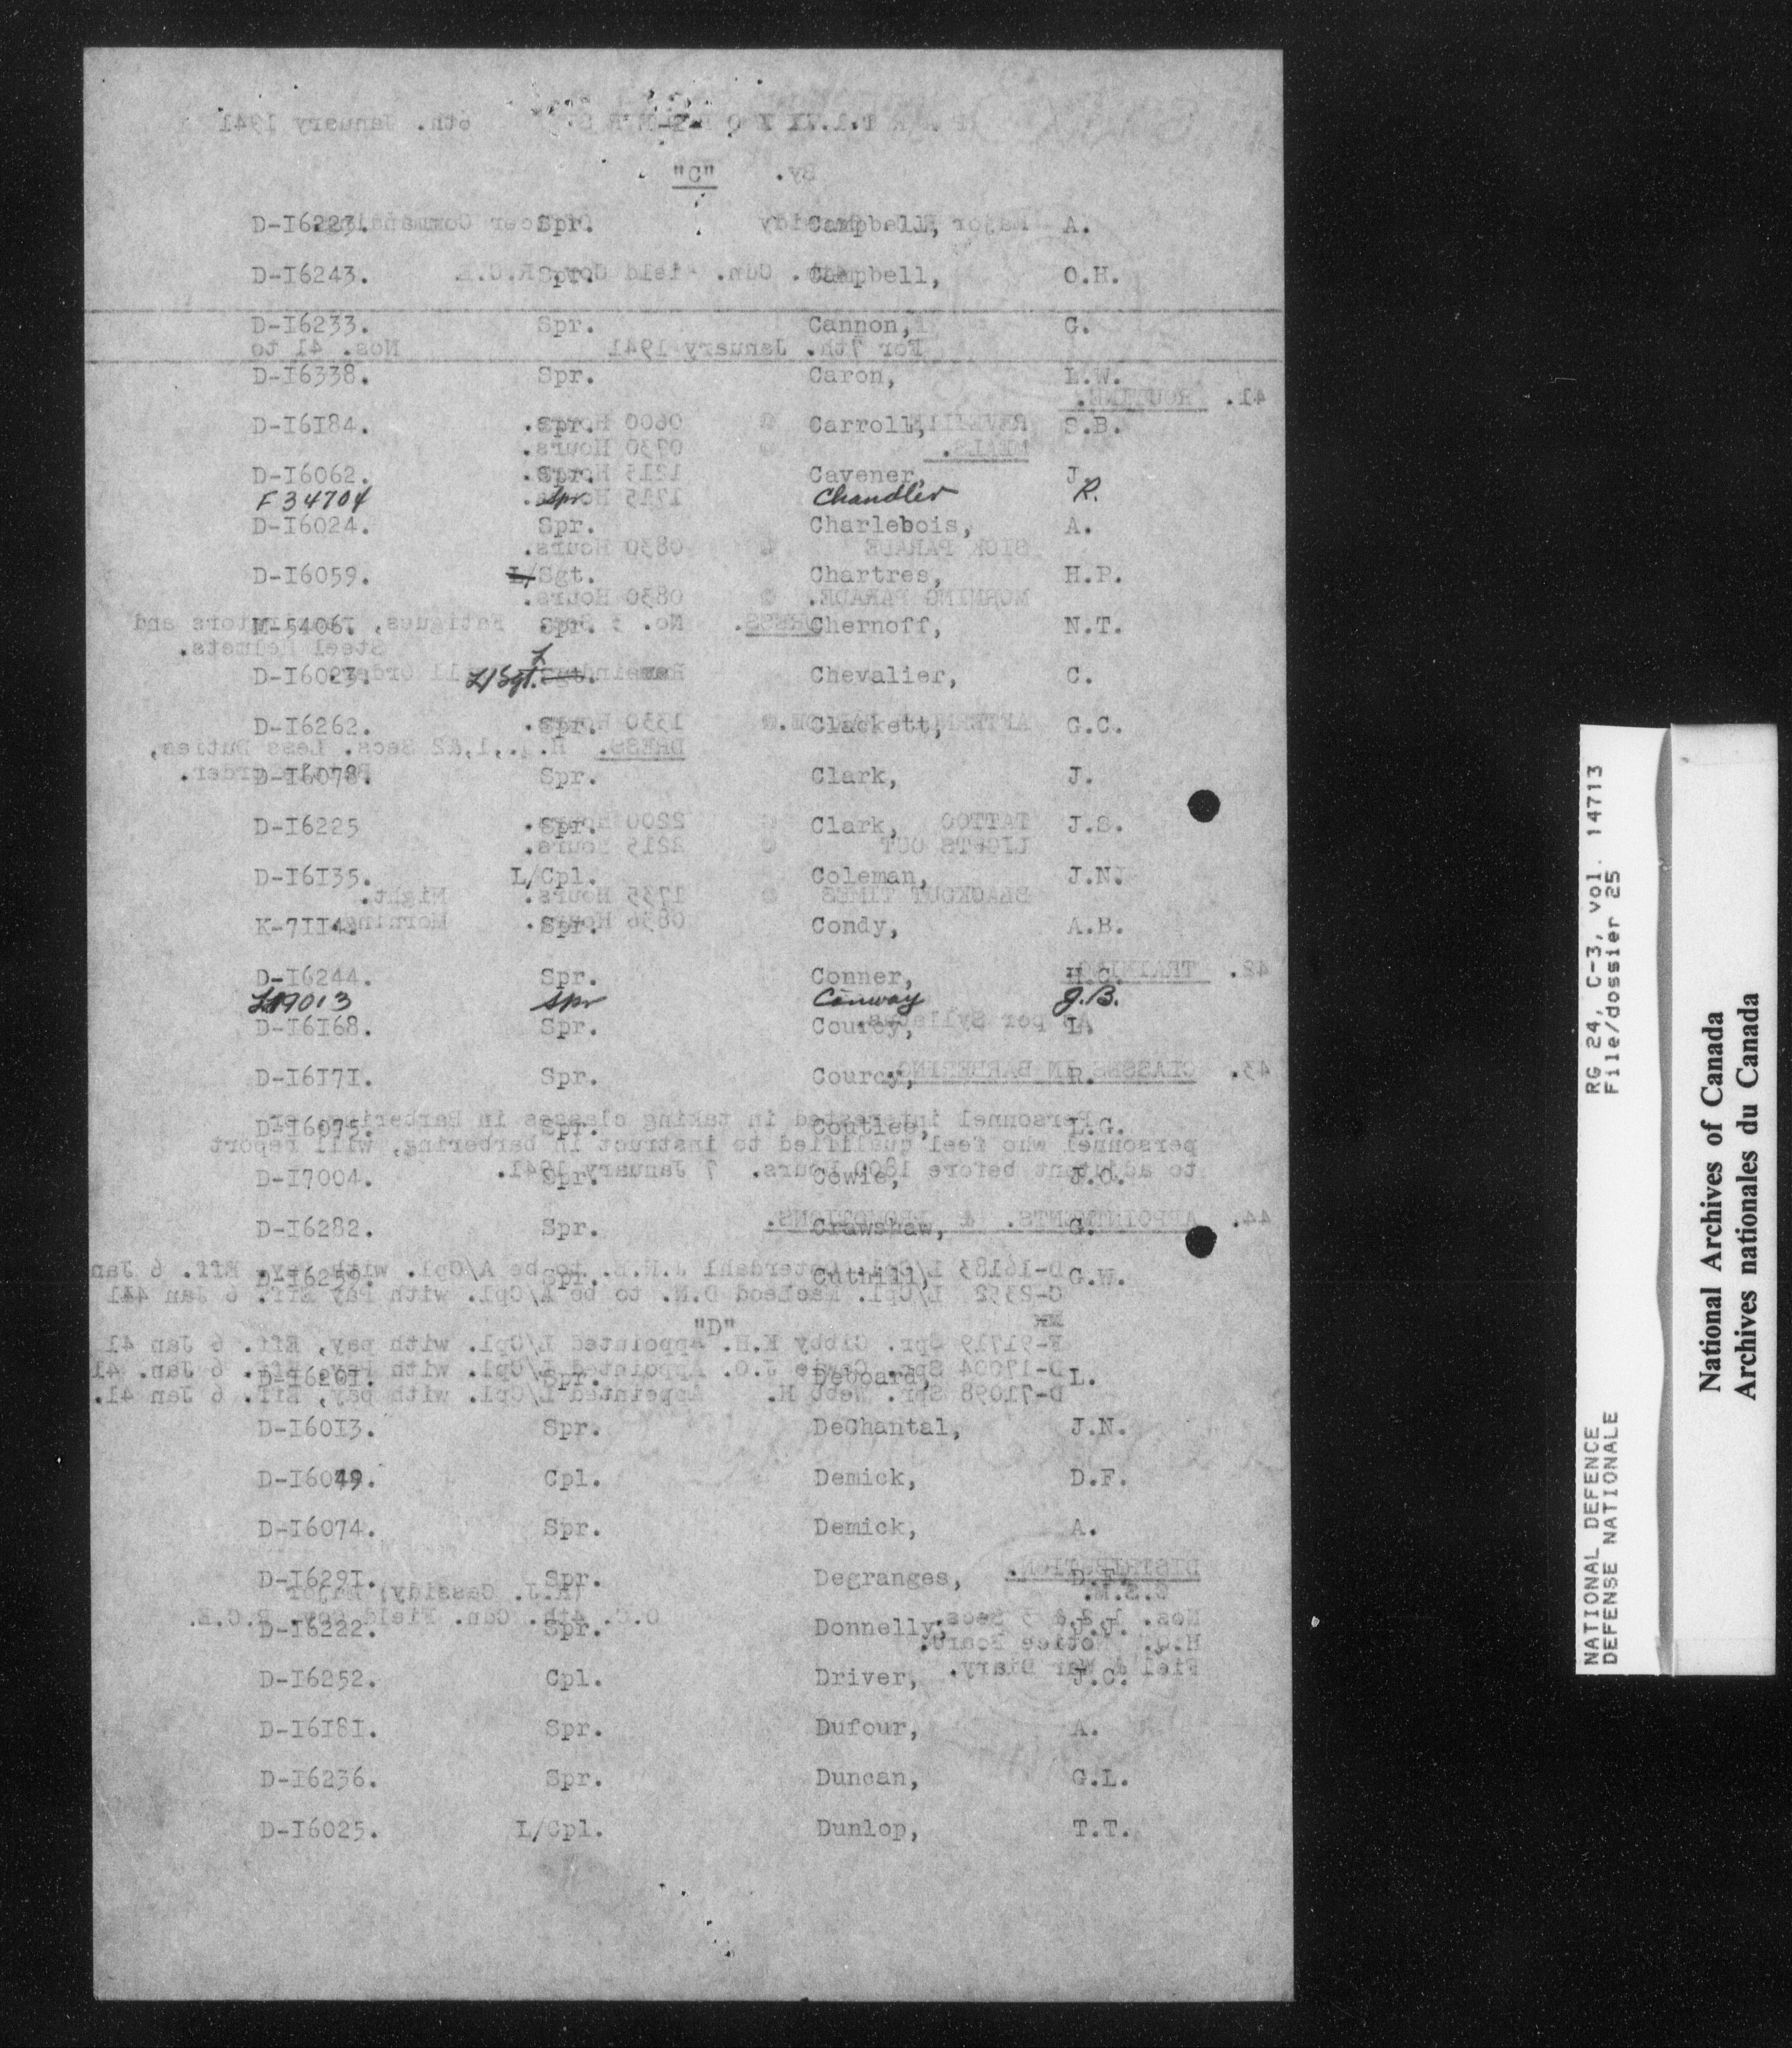 "C"
D-I6223. Spr. Campbell, A.
D-I6243. Spr. Campbell, O.H.
D-I6233. Spr. Cannon, G.
D-I6338. Spr. Caron, L.W.
D-I6I84. Spr. Carroll, S.B.
D-I6062. Spr. Cavener, J.
F 34704 Spr. Chandler R.
D-I6024. Spr. Charlebois, A.
D-I6059. L/Sgt. Chartres, H.P.
M-5406. Spr. Chernoff, N.T.
D-I6023. L/Sgt. Chevalier, C.
D-I6262. Spr. Clackett, G.C.
D-I6078. Spr. Clark, J.
D-I6225 Spr. Clark, J.S.
D-I6I35. L/Cpl. Coleman, J.N.
K-7II4. Spr. Condy, A.B.
D-I6244. Spr. Conner, H.C.
19013 Spr Conway J.B.
D-I6I68. Spr. Courcy, L.
D-I6I7I. Spr. Courcy, R.
D-I6075. Spr. Coutlee, L.G.
D-I7004. Spr. Cowie, J.O.
D-I6282. Spr. Crawshaw, G.
D-I6259. Spr. Cuthill, G.W.
"D"
D-I620I. Spr. Deboard, L.
D-I60I3. Spr. DeChantal, J.N.
D-I6049. Cpl. Demick, D.F.
D-I6074. Spr. Demick, A.
D-I629I. Spr. Degranges, D.F.
D-I6222. Spr. Donnelly, J.J.
D-I6252. Cpl. Driver, J.C.
D-I6I8I. Spr. Dufour, A.
D-I6236. Spr. Duncan, G.L.
D-I6025. L/Cpl. Dunlop, T.T.
NATIONAL DEFENCE RG 24, C-3, vol. 14713
DEFENSE NATIONALE File/dossier 25
National Archives of Canada
Archives nationales du Canada